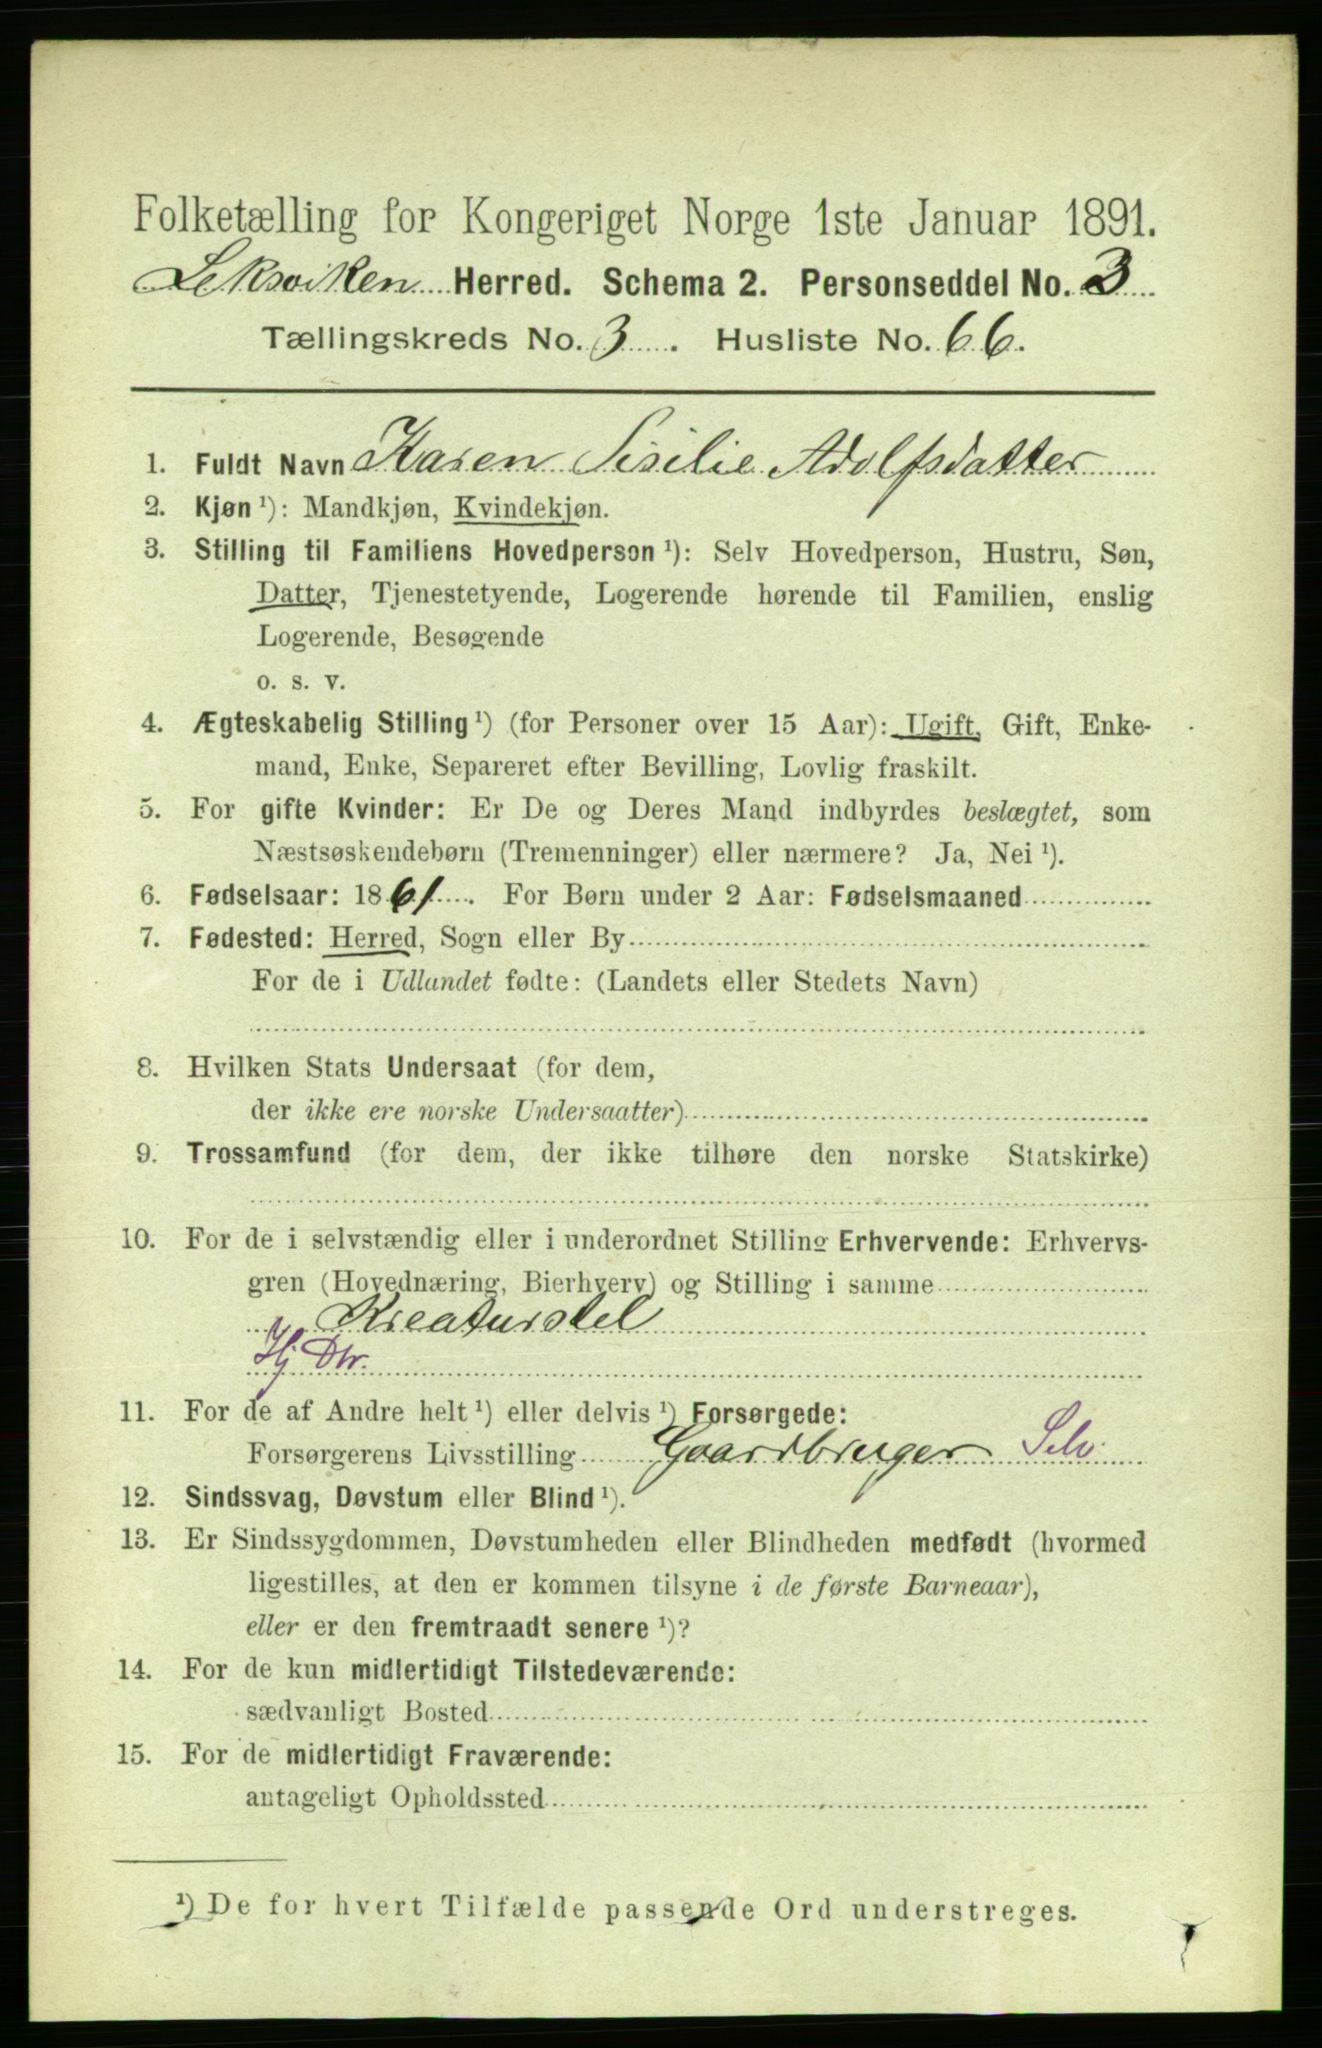 Folketælling for Kongeriget Norge 1ste Januar 1891.
Leksviken Herred. Schema 2. Personseddel No. 3
Tællingskreds No. 3. Husliste No. 66.
1. Fuldt Navn Karen Sisilie Adolfsdatter
2. Kjøn ¹): Mandkjøn, Kvindekjøn.
3. Stilling til Familiens Hovedperson ¹): Selv Hovedperson, Hustru, Søn,
Datter, Tjenestetyende, Logerende hørende til Familien, enslig
Logerende, Besøgende
o. s. v.
4. Ægteskabelig Stilling ¹) (for Personer over 15 Aar): Ugift, Gift, Enke-
mand, Enke, Separeret efter Bevilling, Lovlig fraskilt.
5. For gifte Kvinder: Er De og Deres Mand indbyrdes beslægtet, som
Næstsøskendebørn (Tremenninger) eller nærmere? Ja, Nei ¹).
6. Fødselsaar: 1861. For Børn under 2 Aar: Fødselsmaaned
7. Fødested: Herred, Sogn eller By
For de i Udlandet fødte: (Landets eller Stedets Navn)
8. Hvilken Stats Undersaat (for dem,
der ikke ere norske Undersaatter)
9. Trossamfund (for dem, der ikke tilhøre den norske Statskirke)
10. For de i selvstændig eller i underordnet Stilling Erhvervende: Erhvervs-
gren (Hovednæring, Bierhverv) og Stilling i samme
Kreaturstel
Hj Dtr.
11. For de af Andre helt ¹) eller delvis ¹) Forsørgede:
Forsørgerens Livsstilling Gaardbruger Selv.
12. Sindssvag, Døvstum eller Blind ¹).
13. Er Sindssygdommen, Døvstumheden eller Blindheden medfødt (hvormed
ligestilles, at den er kommen tilsyne i de første Barneaar),
eller er den fremtraadt senere ¹)?
14. For de kun midlertidigt Tilstedeværende:
sædvanligt Bosted
15. For de midlertidigt Fraværende:
antageligt Opholdssted
¹) De for hvert Tilfælde passende Ord understreges.